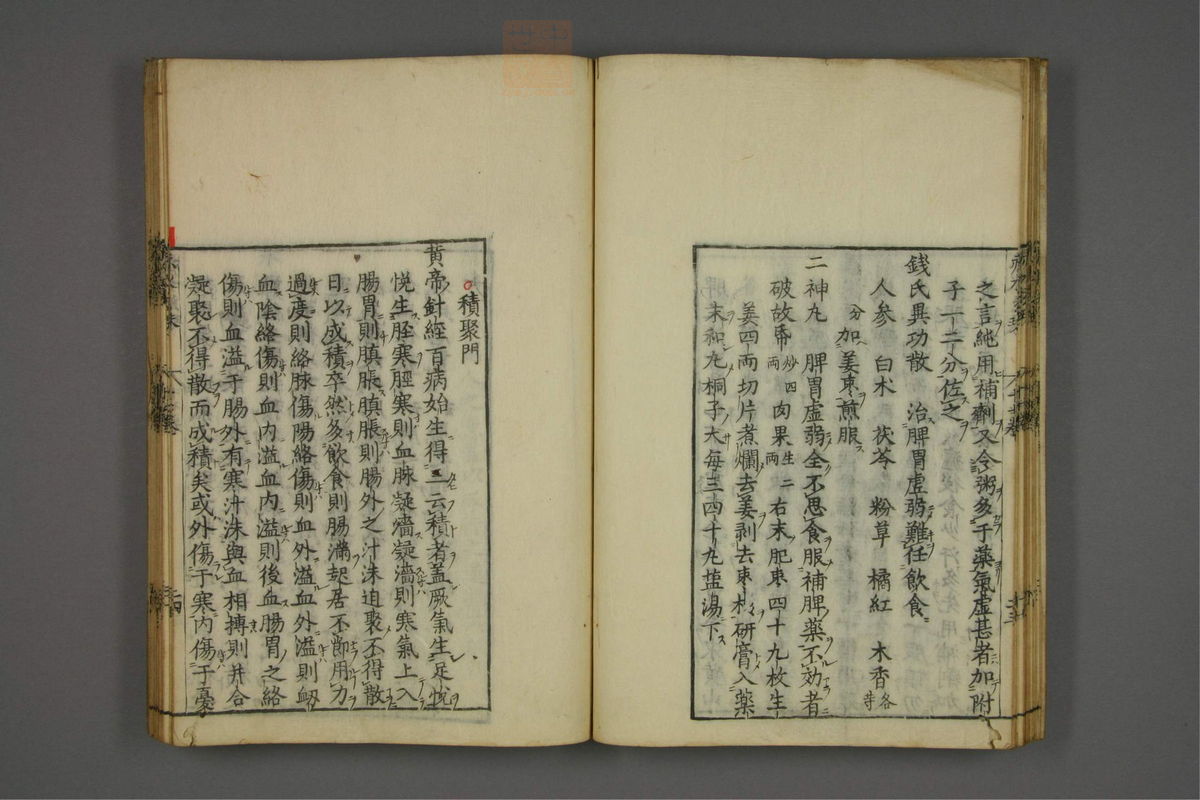 之言純用補劑又令粥多于藥氣虛甚者加附
子一二分佐之
錢氏異功散 治脾胃虛弱難任飲食
人參 白朮 茯苓 粉草 橘紅 木香各等
分 加姜枣煎服
二神丸 脾胃虛弱全不思食服補脾藥不効者
破故帋炒四兩 肉果生二兩 右末肥枣四十九枚生
姜四兩切片煮爛去姜剥去枣核研膏入藥
末和丸桐子大每三四十丸盐湯下
積聚門
黄帝針經百病始生得三云積者蓋厥氣生足悗
悗生脛寒脛寒則血脉凝濇凝濇則寒氣上入
腸胃則䐜脹䐜脹則腸外之汁沫迫聚不得散
日以成積卒然多飲食則腸滿起居不節用力
過度則絡脉傷陽絡傷則血外溢血外溢則衂
血陰絡傷則血内溢血内溢則後血腸胃之絡
傷則血溢于腸外有寒汁沫與血相搏則并合
凝聚不得散而成積矣或外傷于寒内傷于憂